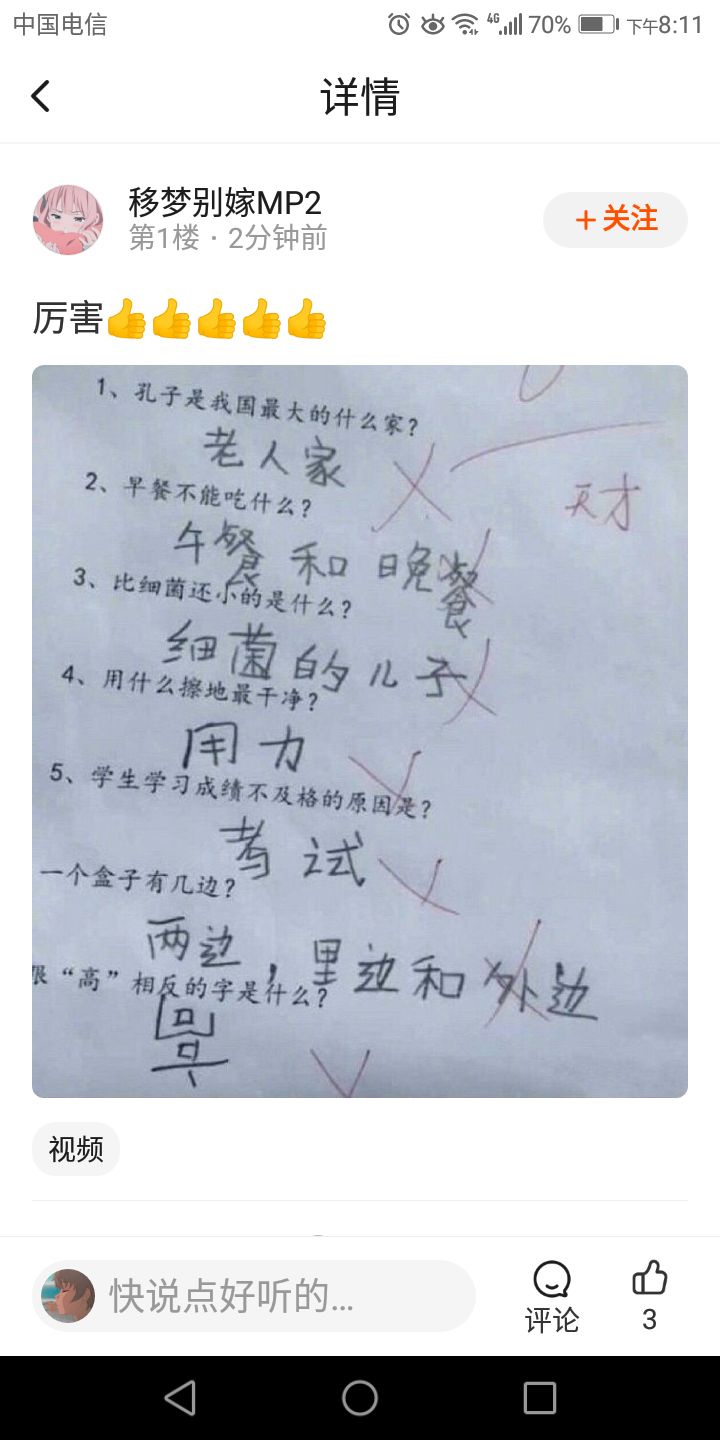 中国电信 4G 70% 下午8:11
详情
移梦别嫁MP2
第1楼 · 2分钟前
+关注
厉害👍👍👍👍👍
1、孔子是我国最大的什么家?
老人家
天才
2、早餐不能吃什么?
午餐和晚餐
3、比细菌还小的是什么?
细菌的儿子
4、用什么擦地最干净?
用力
5、学生学习成绩不及格的原因是?
考试
一个盒子有几边?
两边,里边和外边
跟“高”相反的字是什么?
视频
快说点好听的...
评论
3